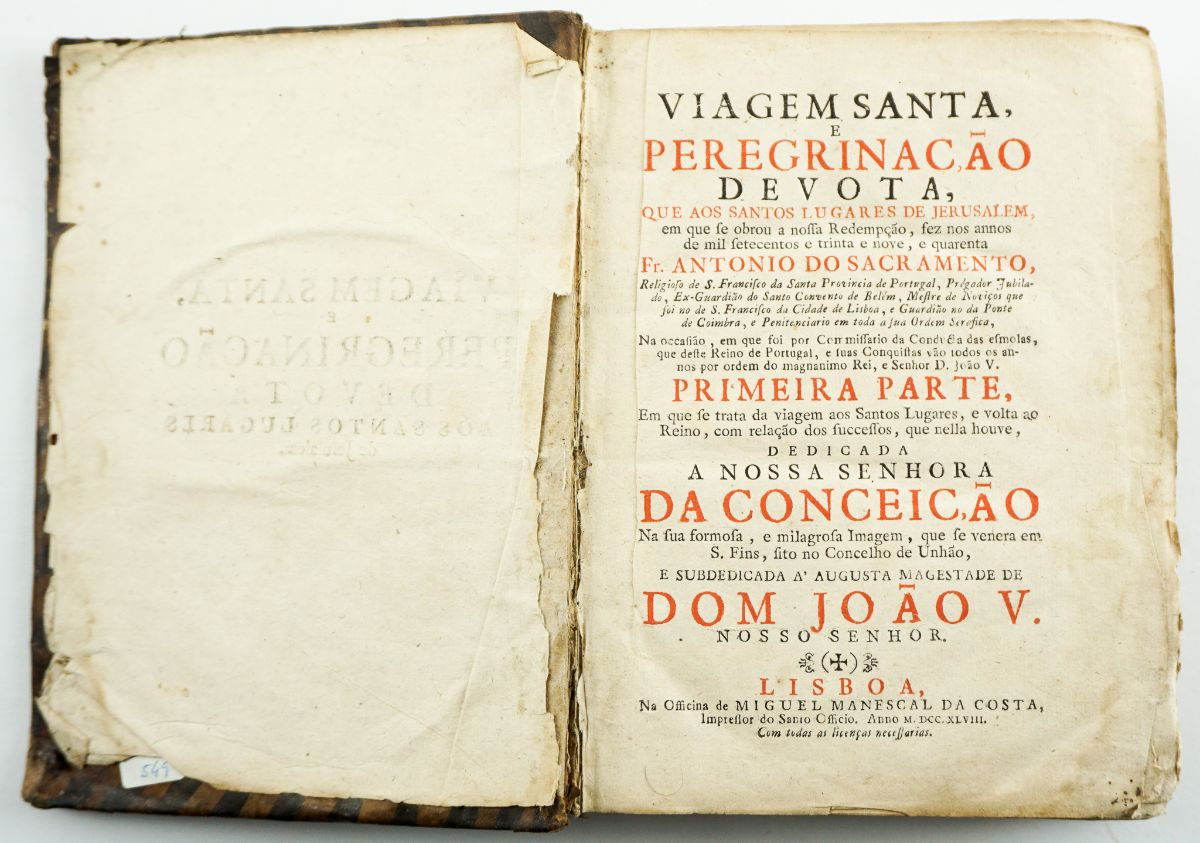 VIAGEM SANTA,
E
PEREGRINAÇÃO
DEVOTA,
QUE AOS SANTOS LUGARES DE JERUSALEM,
em que ſe obrou a noſſa Redempção, fez nos annos
de mil ſetecentos e trinta e nove, e quarenta
Fr. ANTONIO DO SACRAMENTO,
Religioſo de S. Franciſco da Santa Provincia de Portugal, Prégador Jubila-
do, Ex-Guardião do Santo Convento de Belém, Meſtre de Noviços que
foi no de S. Franciſco da Cidade de Lisboa, e Guardião no da Ponte
de Coimbra, e Penitenciario em toda a ſua Ordem Serafica,
Na occaſião, em que foi por Commiſſario da Conducta das eſmolas,
que deſte Reino de Portugal, e ſuas Conquiſtas vão todos os an-
nos por ordem do magnanimo Rei, e Senhor D. João V.
PRIMEIRA PARTE,
Em que ſe trata da viagem aos Santos Lugares, e volta ao
Reino, com relação dos ſucceſſos, que nella houve,
DEDICADA
A NOSSA SENHORA
DA CONCEIÇÃO
Na ſua formoſa, e milagroſa Imagem, que ſe venera em
S. Fins, ſito no Concelho de Unhão,
E SUBDEDICADA A' AUGUSTA MAGESTADE DE
DOM JOÃO V.
NOSSO SENHOR.
LISBOA,
Na Officina de MIGUEL MANESCAL DA COSTA,
Impreſſor do Santo Officio. Anno M. DCC. XLVIII.
Com todas as licenças neceſſarias.
VIAGEM SANTA,
E
PEREGRINAÇÃO
DEVOTA,
AOS SANTOS LUGARES
de Jeruſalem.